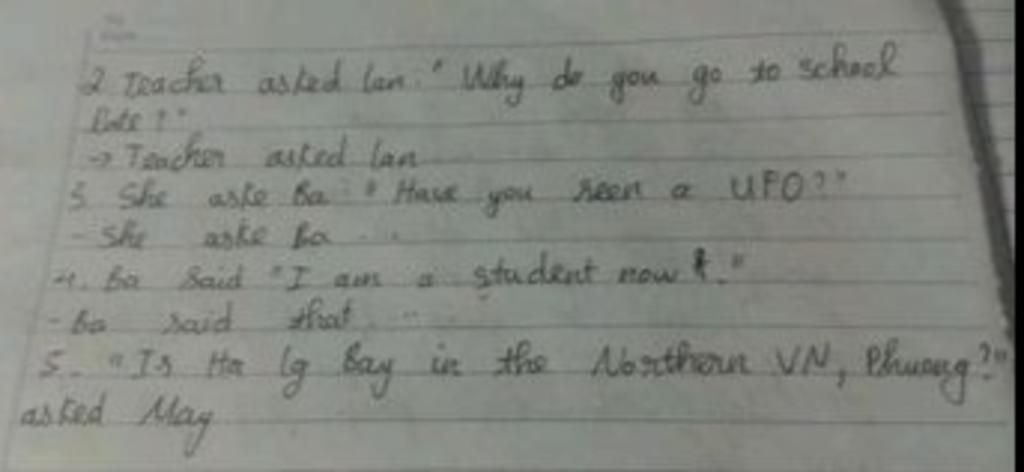 2 Teacher asked Lan: "Why do you go to school
late?"
→ Teacher asked Lan
3. She aske Ba: "Have you seen a UFO?"
- She aske Ba ...
4. Ba said "I am a student now."
- Ba said that ...
5. "Is Ha lg Bay in the Northern VN, Phuong?"
asked May